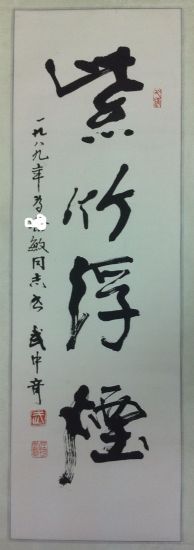 紫竹浮煙
一九八九年
敏同志书
武中奇